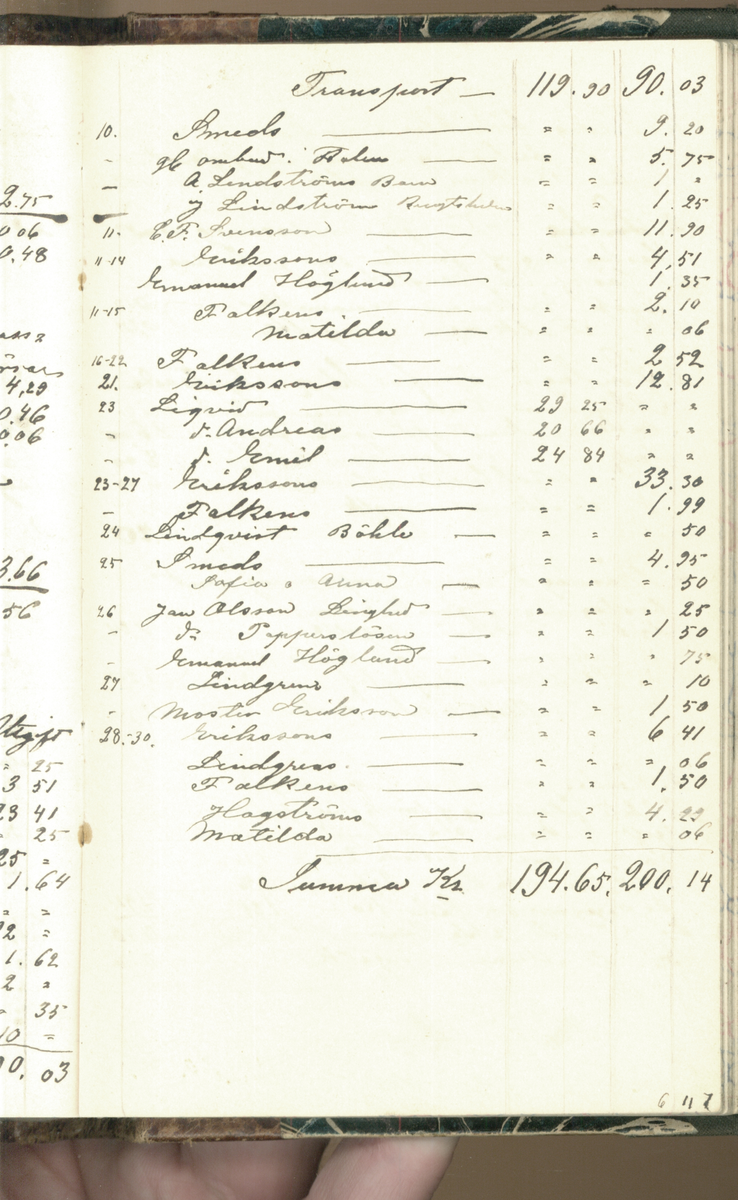 2.75
0 06
0.48
4,29
0.46
0.06
3.66
56
Utgift
" 25
3 51
23 41
" 25
25 "
1.64
" "
2 "
1.62
2 "
" 35
10 "
90.03
Transport — 119.90 90.03
10. Smeds — " " 9.20
- ombud. — " " 5.75
- A. Lindströms Barn " " 1 "
Lindström " " 1.25
11- C.F. Svensson — " " 11.90
11-14 Erikssons — " " 4,51
Emanuel Höglund — 1.35
11-15 Falkens — " " 2.10
Matilda — " " " 06
16-22 Falkens — " " 2 52
21. Erikssons — " " 12.81
23 Liqvid — 29 25 " "
- d. Andreas — 20 66 " "
- d. Emil — 24 84 " "
23-27 Erikssons — " " 33.30
- Falkens — " " 1.99
24 Lindqvist Böhle — " " " 50
25 Smeds — " " 4.95
Sofia o Anna — " " " 50
26 Jan Olsson — " " " 25
- Do — " " 1 50
- Emanuel Höglund — " " " 75
27 Lindgrens — " " " 10
- Moster Eriksson — " " 1 50
28-30. Erikssons — " " 6 41
Lindgrens — " " " 06
Falkens — " " 1.50
Hagströms — " " 4.29
Matilda — " " " 06
Summa Kr. 194.65. 200.14